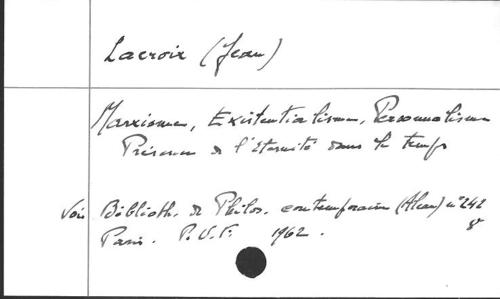 Lacroix (Jean)
Marxisme, Existentialisme, Personnalisme
Présence de l'éternité dans le temps
Voir Biblioth. de Philos. contemporaine (Alcan) n° 242
Paris. P.U.F. 1962.